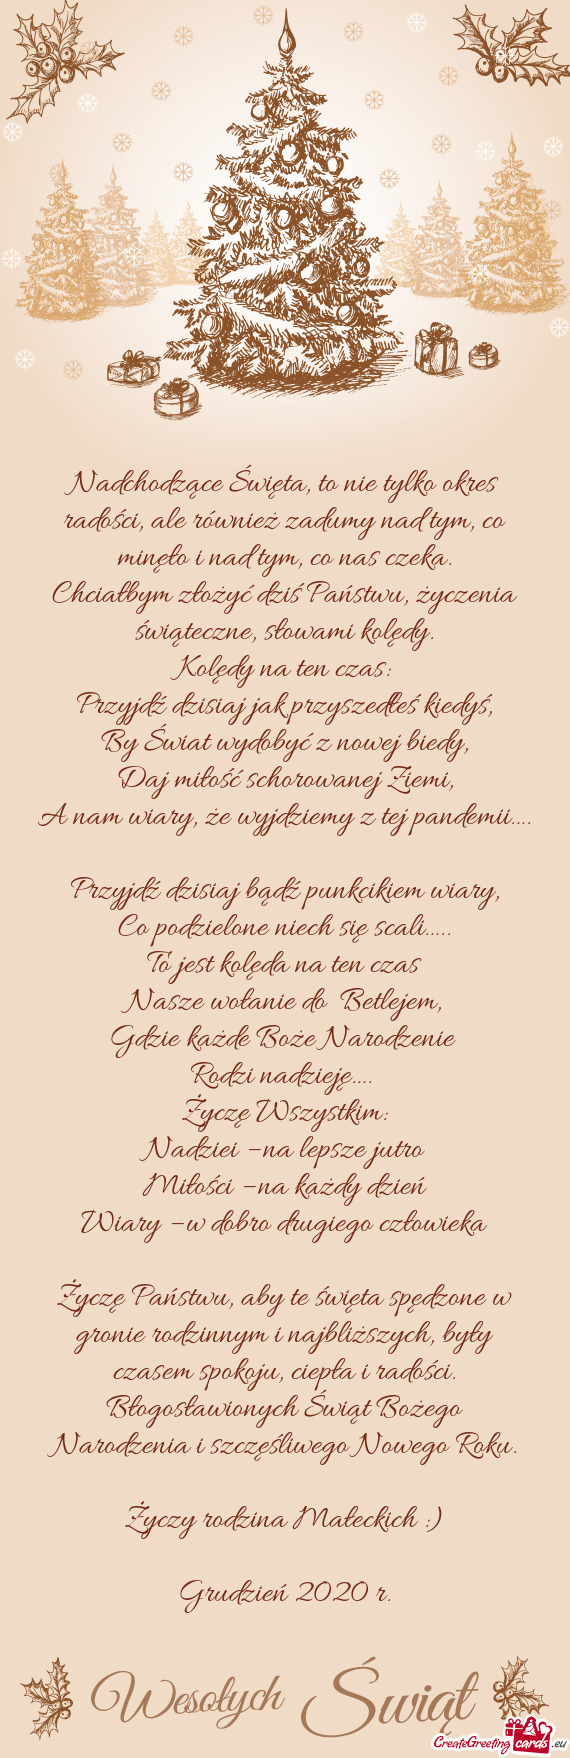 Nadchodzące Święta, to nie tylko okres
radości, ale również zadumy nad tym, co
minęło i nad tym, co nas czeka.
Chciałbym złożyć dziś Państwu, życzenia
świąteczne, słowami kolędy.
Kolędy na ten czas:
Przyjdź dzisiaj jak przyszedłeś kiedyś,
By Świat wydobyć z nowej biedy,
Daj miłość schorowanej Ziemi,
A nam wiary, że wyjdziemy z tej pandemii....
Przyjdź dzisiaj bądź punkcikiem wiary,
Co podzielone niech się scali.....
To jest kolęda na ten czas
Nasze wołanie do Betlejem,
Gdzie każde Boże Narodzenie
Rodzi nadzieję....
Życzę Wszystkim:
Nadziei –na lepsze jutro
Miłości –na każdy dzień
Wiary –w dobro drugiego człowieka
Życzę Państwu, aby te święta spędzone w
gronie rodzinnym i najbliższych, były
czasem spokoju, ciepła i radości.
Błogosławionych Świąt Bożego
Narodzenia i szczęśliwego Nowego Roku.
Życzy rodzina Małeckich :)
Grudzień 2020 r.
Wesołych Świąt
CreateGreetingcards.eu